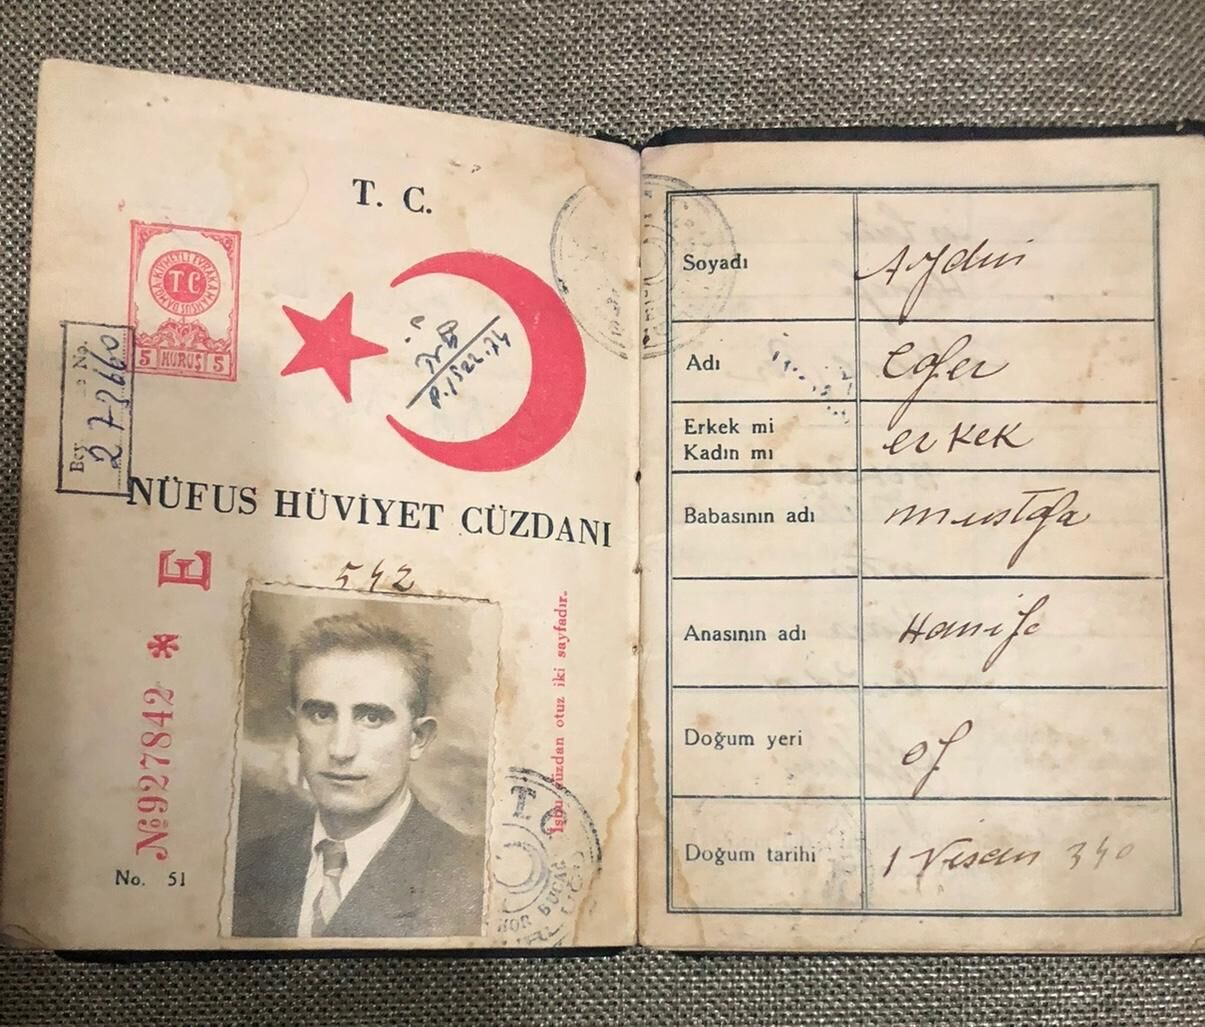 T. C.
T.C
5 KURUŞ 5
No.
273660
542
NÜFUS HÜVİYET CÜZDANI
E
№ 927842 *
No. 51
İşbu cüzdan otuz iki sayfadır.
Soyadı Aydın
Adı Cafer
Erkek mi
Kadın mı erkek
Babasının adı mustafa
Anasının adı Hanife
Doğum yeri of
Doğum tarihi 1 Nisan 340